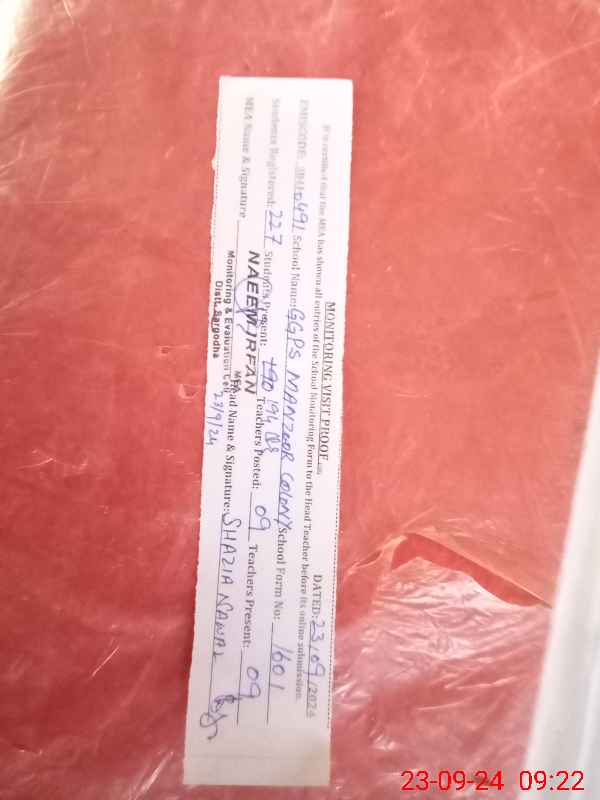 MONITORING VISIT PROOF
DATED: 23/09/2024
It is certified that the MEA has shown all entries of the School Monitoring Form to the Head Teacher before its online submission.
EMISCODE: School Name: GGPS MANZOOR COLONY School Form No: 1601
Students Registered: 227 Students Present: 190 194 Teachers Posted: 09 Teachers Present: 09
MEA Name & Signature Head Name & Signature: SHAZIA NAWAZ
NAEEM IRFAN
MEA
Monitoring & Evaluation Cell
Distt. Sargodha
23/9/24
23-09-24 09:22